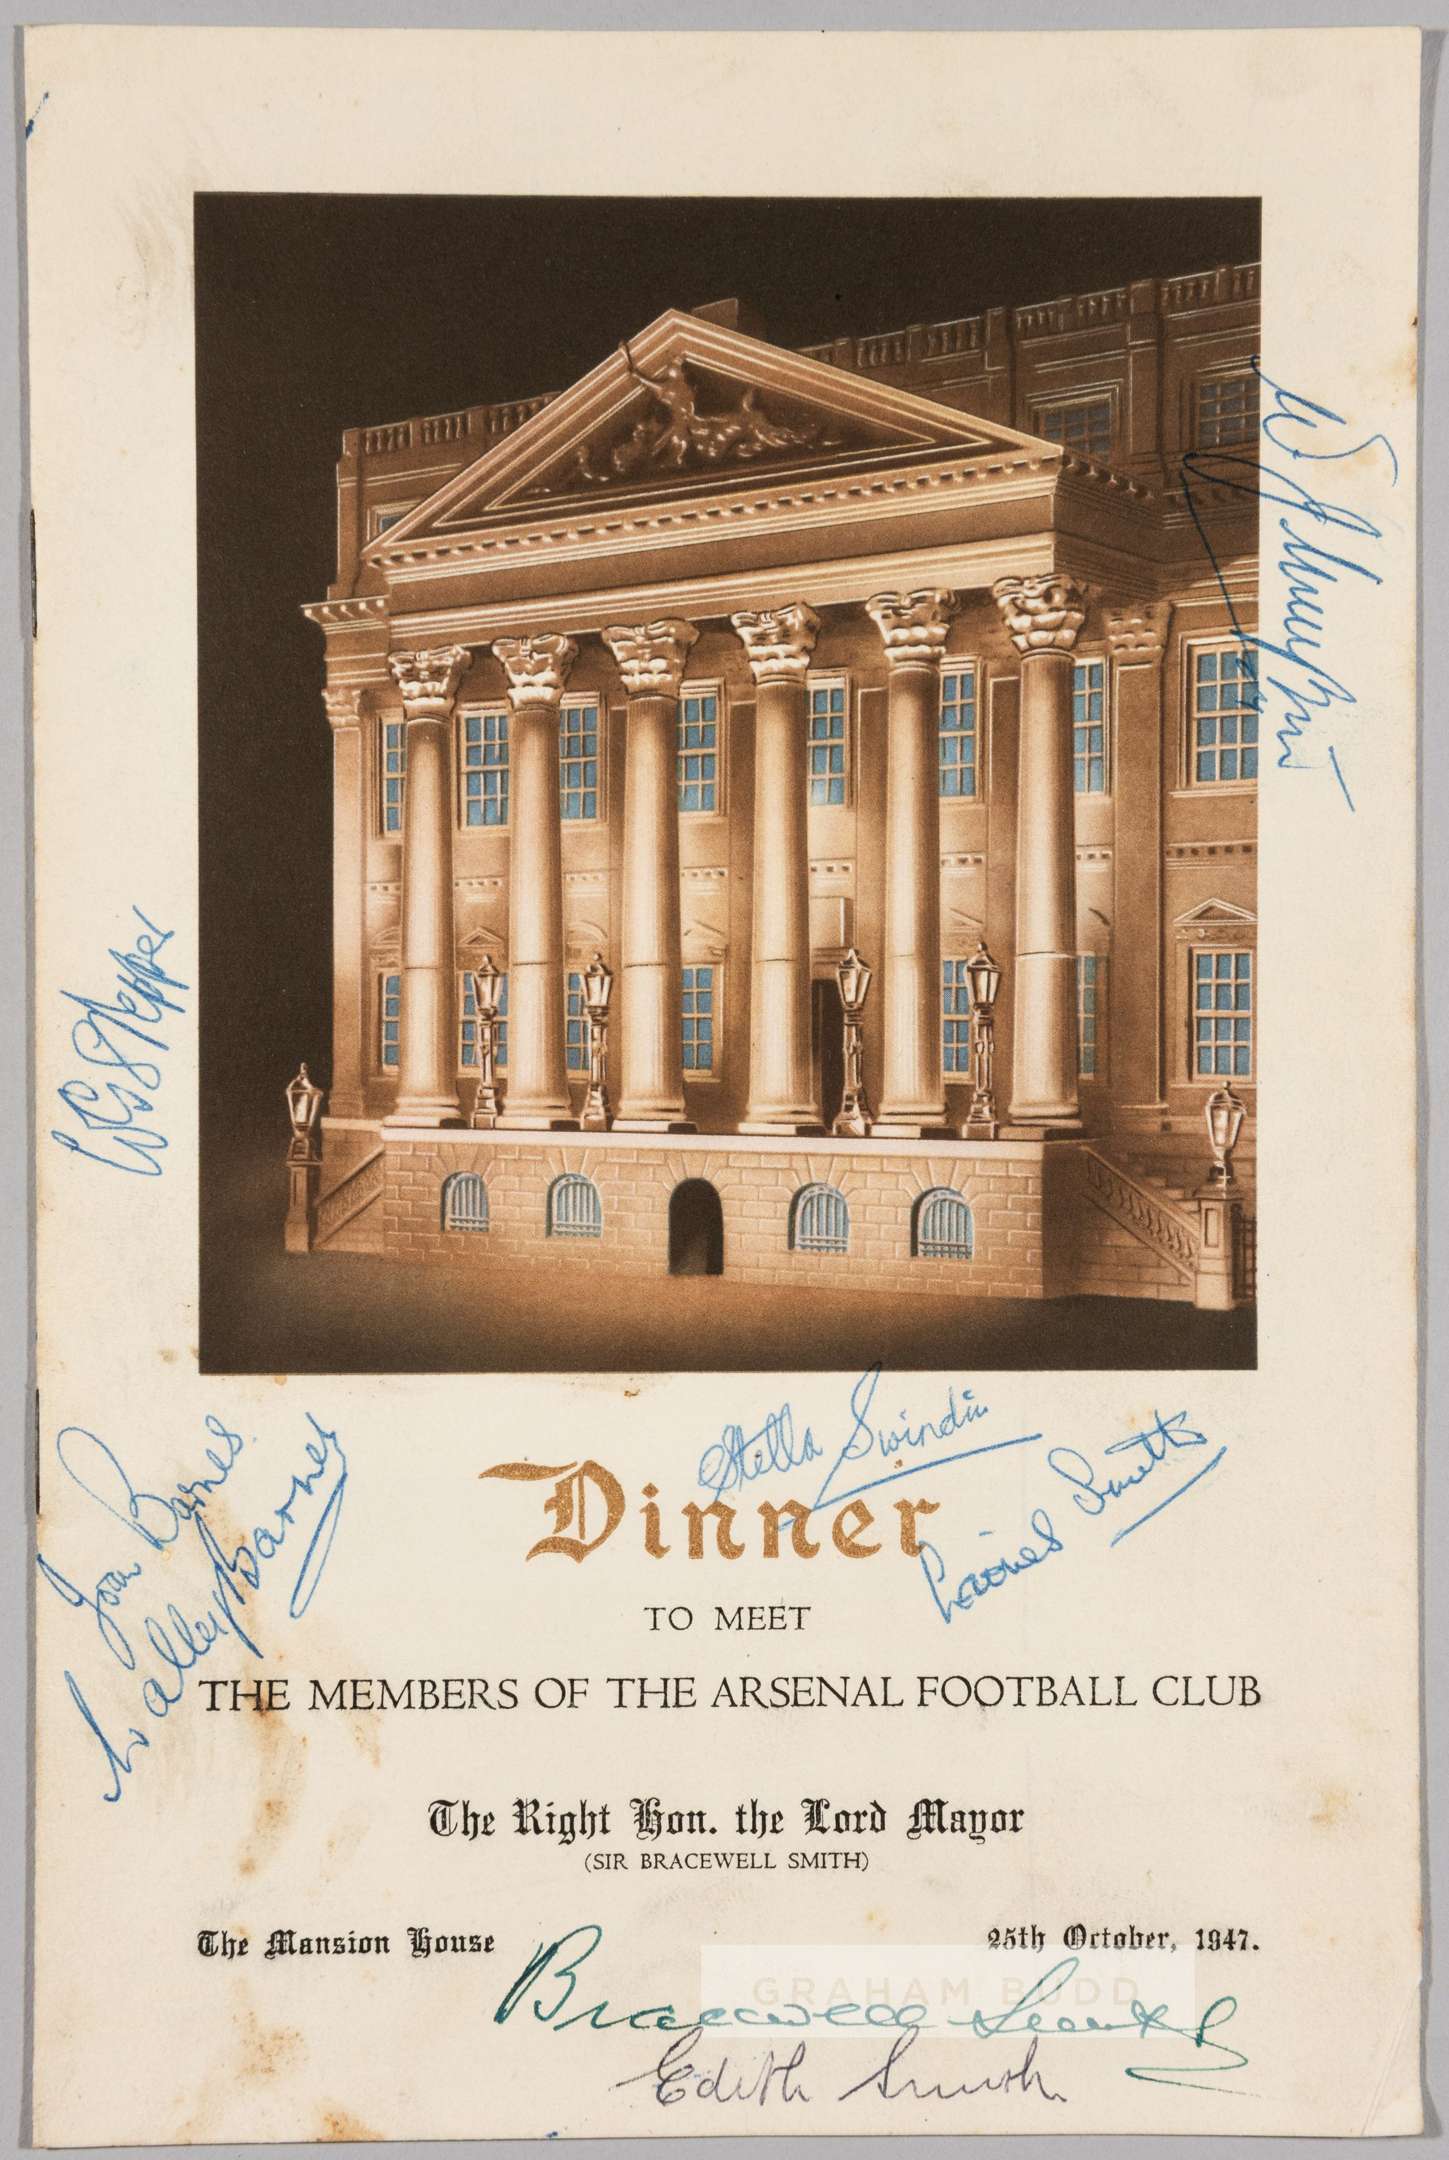 Stella Swindin
Smith
Joan Barnes
Walley Barnes
Dinner
TO MEET
THE MEMBERS OF THE ARSENAL FOOTBALL CLUB
The Right Hon. the Lord Mayor
(SIR BRACEWELL SMITH)
The Mansion House
25th October, 1947.
GRAHAM BUDD
Bracewell Smith
Edith Smith